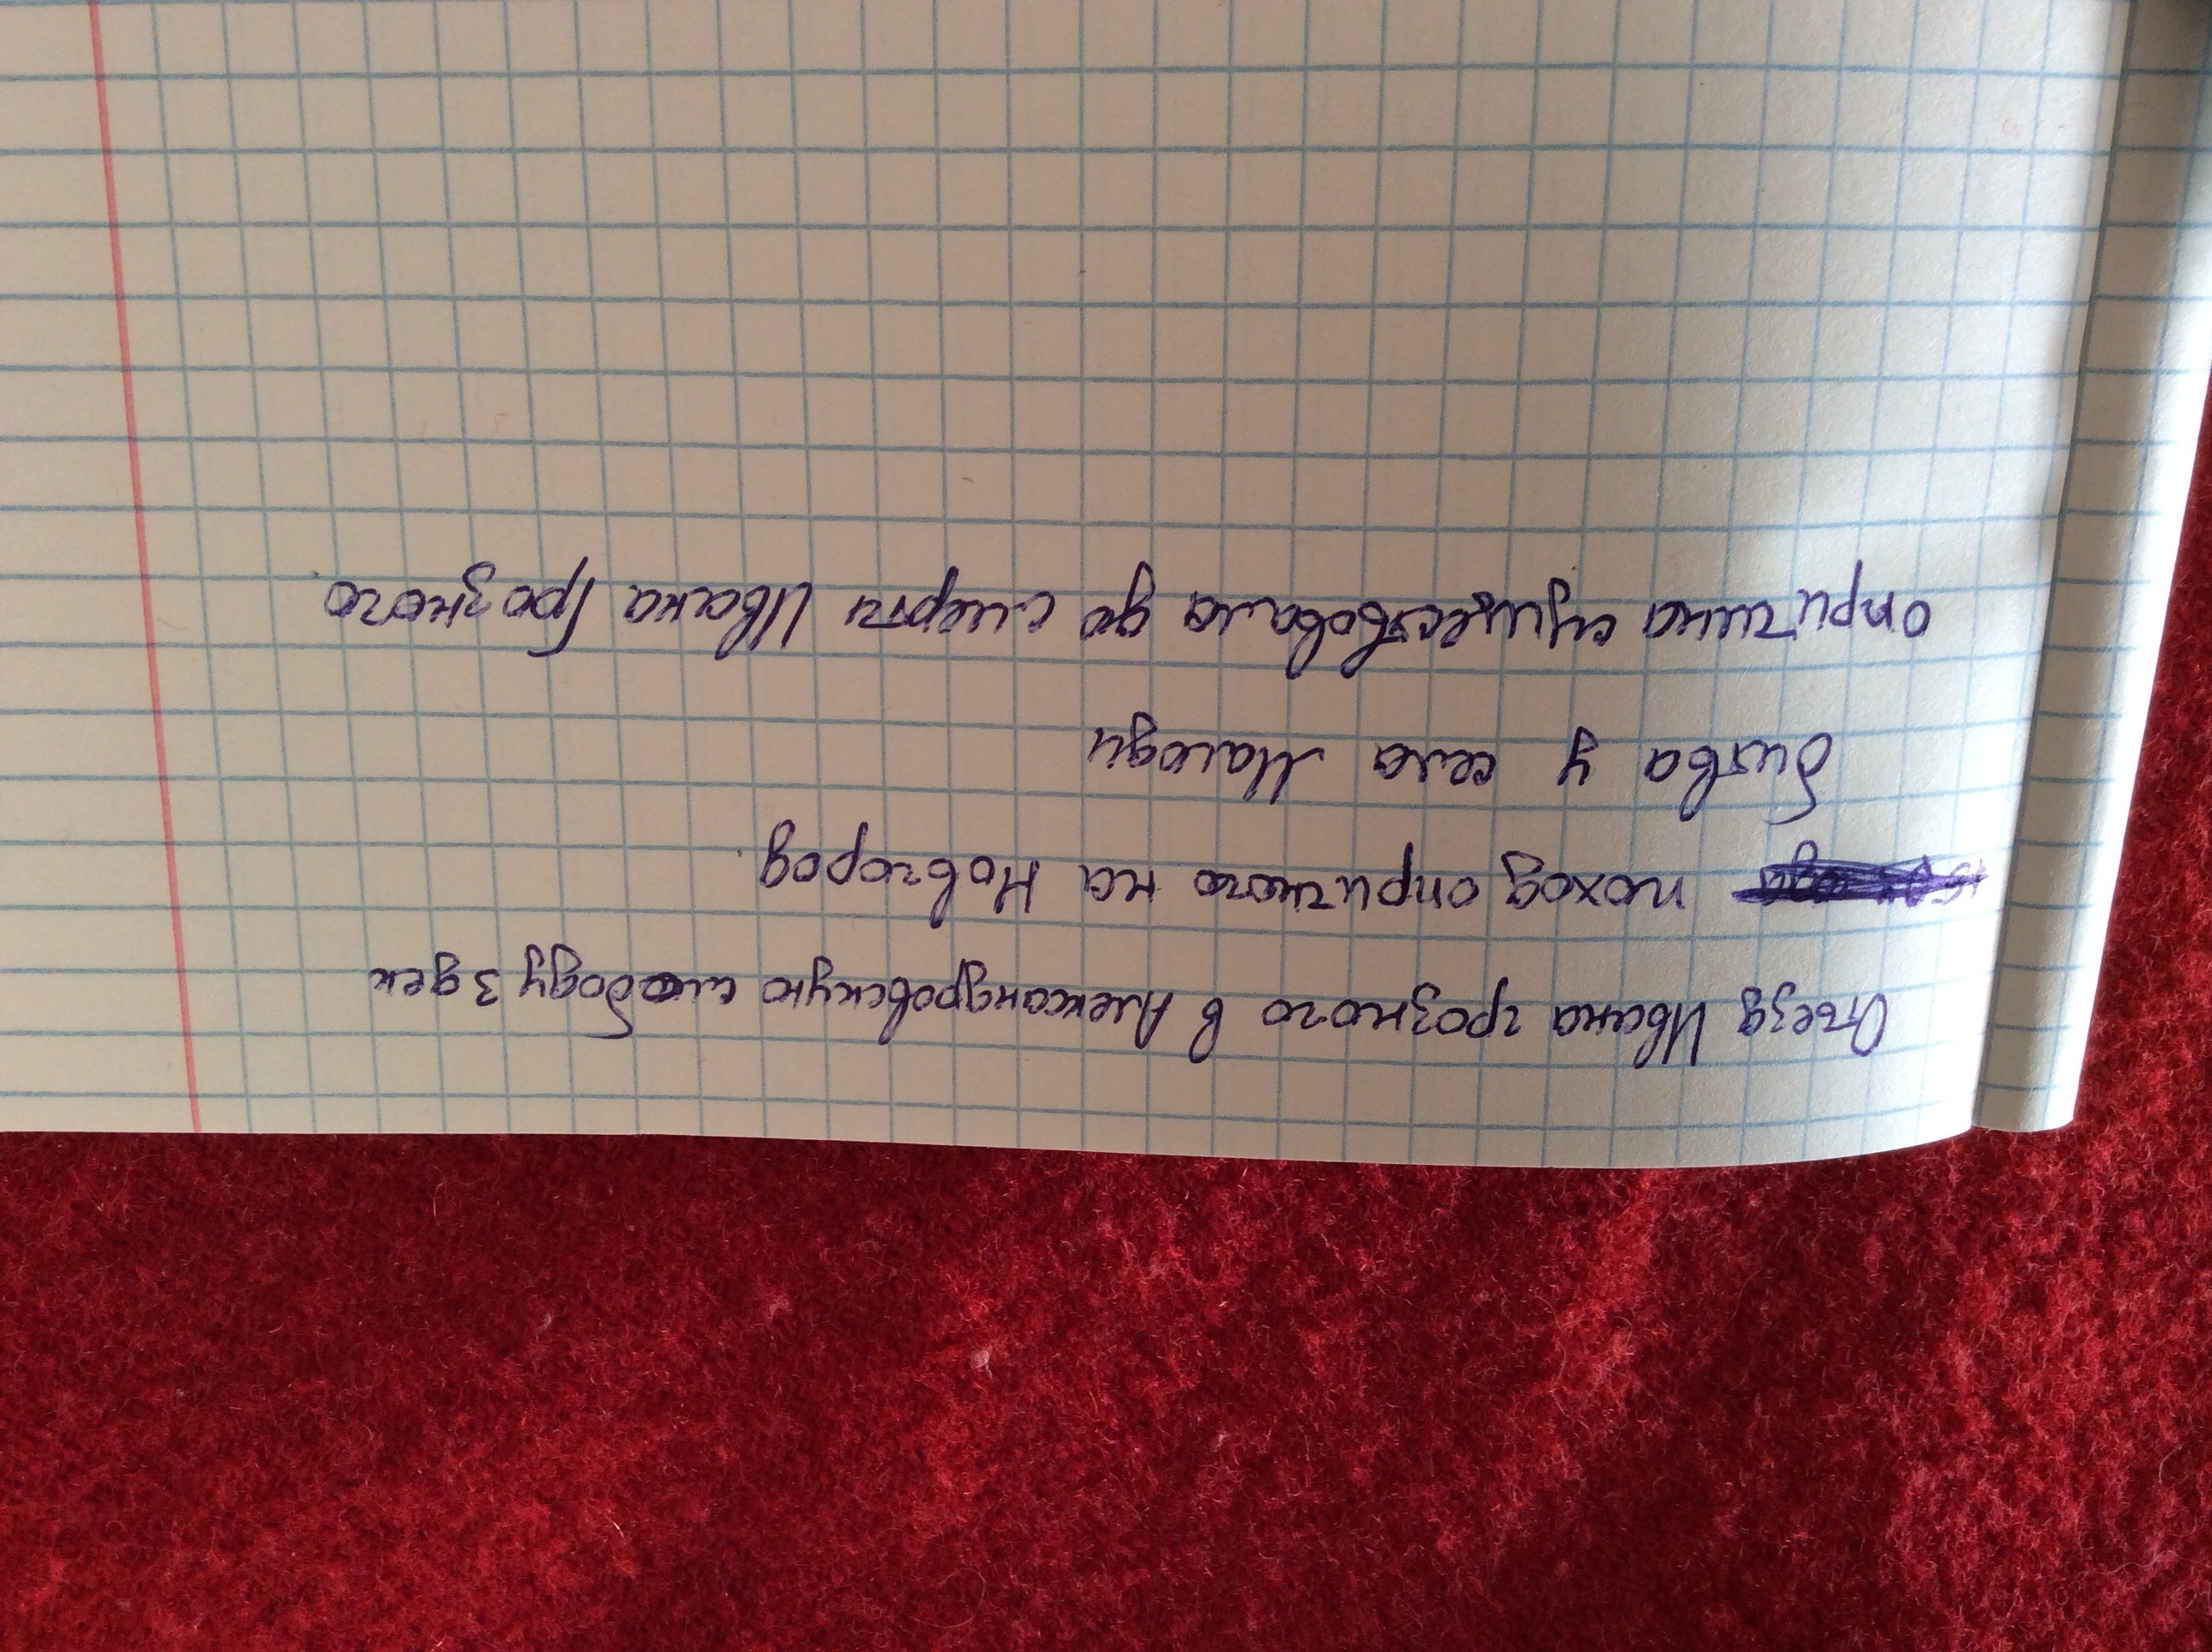 Отъезд Ивана грозного в Александровскую слободу 3 дек
поход опричного на Новгород
битва у села Малоди
опричина существовала до смерти Ивана Грозного